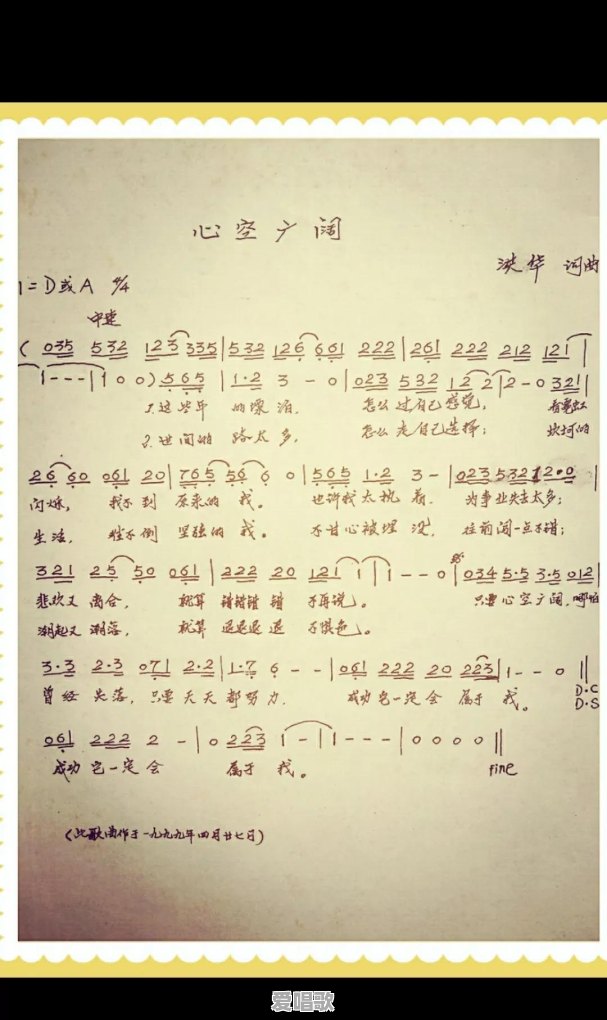 心空广阔
洪华 词曲
1=D或A 4/4
中速
( 035 532 123 335 | 532 126 661 222 | 261 222 212 121 |
1 - - - | 1 0 0 ) 565 | 1·2 3 - 0 | 023 532 12 2 | 2 - 0 321 |
1.这些年 的漂泊, 怎么过自己感觉, 看霓虹
2.世间的 路太多, 怎么走自己选择; 坎坷的
26 60 061 20 | 765 56 6 0 | 565 1·2 3 - | 023 532 12·0 |
闪烁, 找不到 原来的 我。 也许我太执着, 为事业失去太多;
生活, 难不倒 坚强的 我。 不甘心被埋没, 往前闯一点不错;
321 25 50 061 | 222 20 121 1 | 1 - - 0 | 034 5·5 3·5 012 |
悲欢又离合, 就算 错错错 错 不再说。 只要心空广阔, 哪怕
潮起又潮落, 就算 退退退 退 不惧色。
3·3 2·3 071 2·2 | 1·7 6 - - | 061 222 20 223 | 1 - - 0 ||
曾经失落, 只要天天都努力, 成功它一定会 属于我。 D·C
D·S
061 222 2 - | 0 223 1 - | 1 - - - | 0 0 0 0 ||
成功它一定会 属于我。 fine
(此歌曲作于一九九九年四月廿七日)
爱唱歌